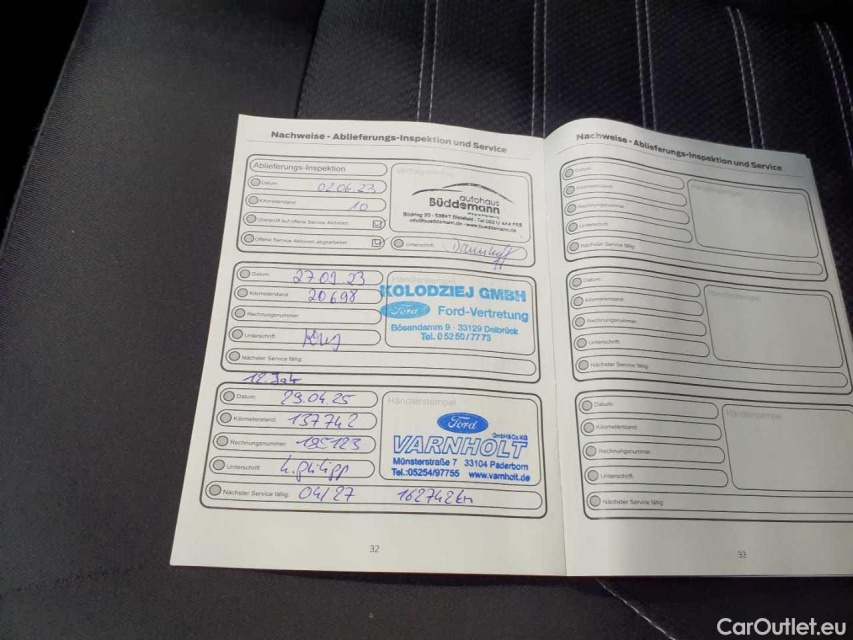 Nachweise - Ablieferungs-Inspektion und Service
Ablieferungs-Inspektion
Datum: 02.06.23
Kilometerstand: 10
Überprüft auf offene Service Aktionen:
Offene Service-Aktionen abgearbeitet:
Unterschrift:
autohaus
Büddemann
Datum: 27.09.23
Kilometerstand: 20698
Rechnungsnummer:
Unterschrift:
Nächster Service fällig:
Händlerstempel
KOLODZIEJ GMBH
Ford Ford-Vertretung
Bösendamm 9 · 33129 Delbrück
Tel. 05250/7773
Datum: 29.04.25
Kilometerstand: 137742
Rechnungsnummer: 195123
Unterschrift:
Nächster Service fällig: 04/27 162742km
Händlerstempel
Ford
VARNHOLT GmbH&Co.KG
Münsterstraße 7 33104 Paderborn
Tel.:05254/97755 www.varnholt.de
32
Nachweise - Ablieferungs-Inspektion und Service
Datum:
Kilometerstand:
Rechnungsnummer:
Unterschrift:
Nächster Service fällig:
Händlerstempel
Datum:
Kilometerstand:
Rechnungsnummer:
Unterschrift:
Nächster Service fällig:
Händlerstempel
Datum:
Kilometerstand:
Rechnungsnummer:
Unterschrift:
Nächster Service fällig:
Händlerstempel
33
CarOutlet.eu